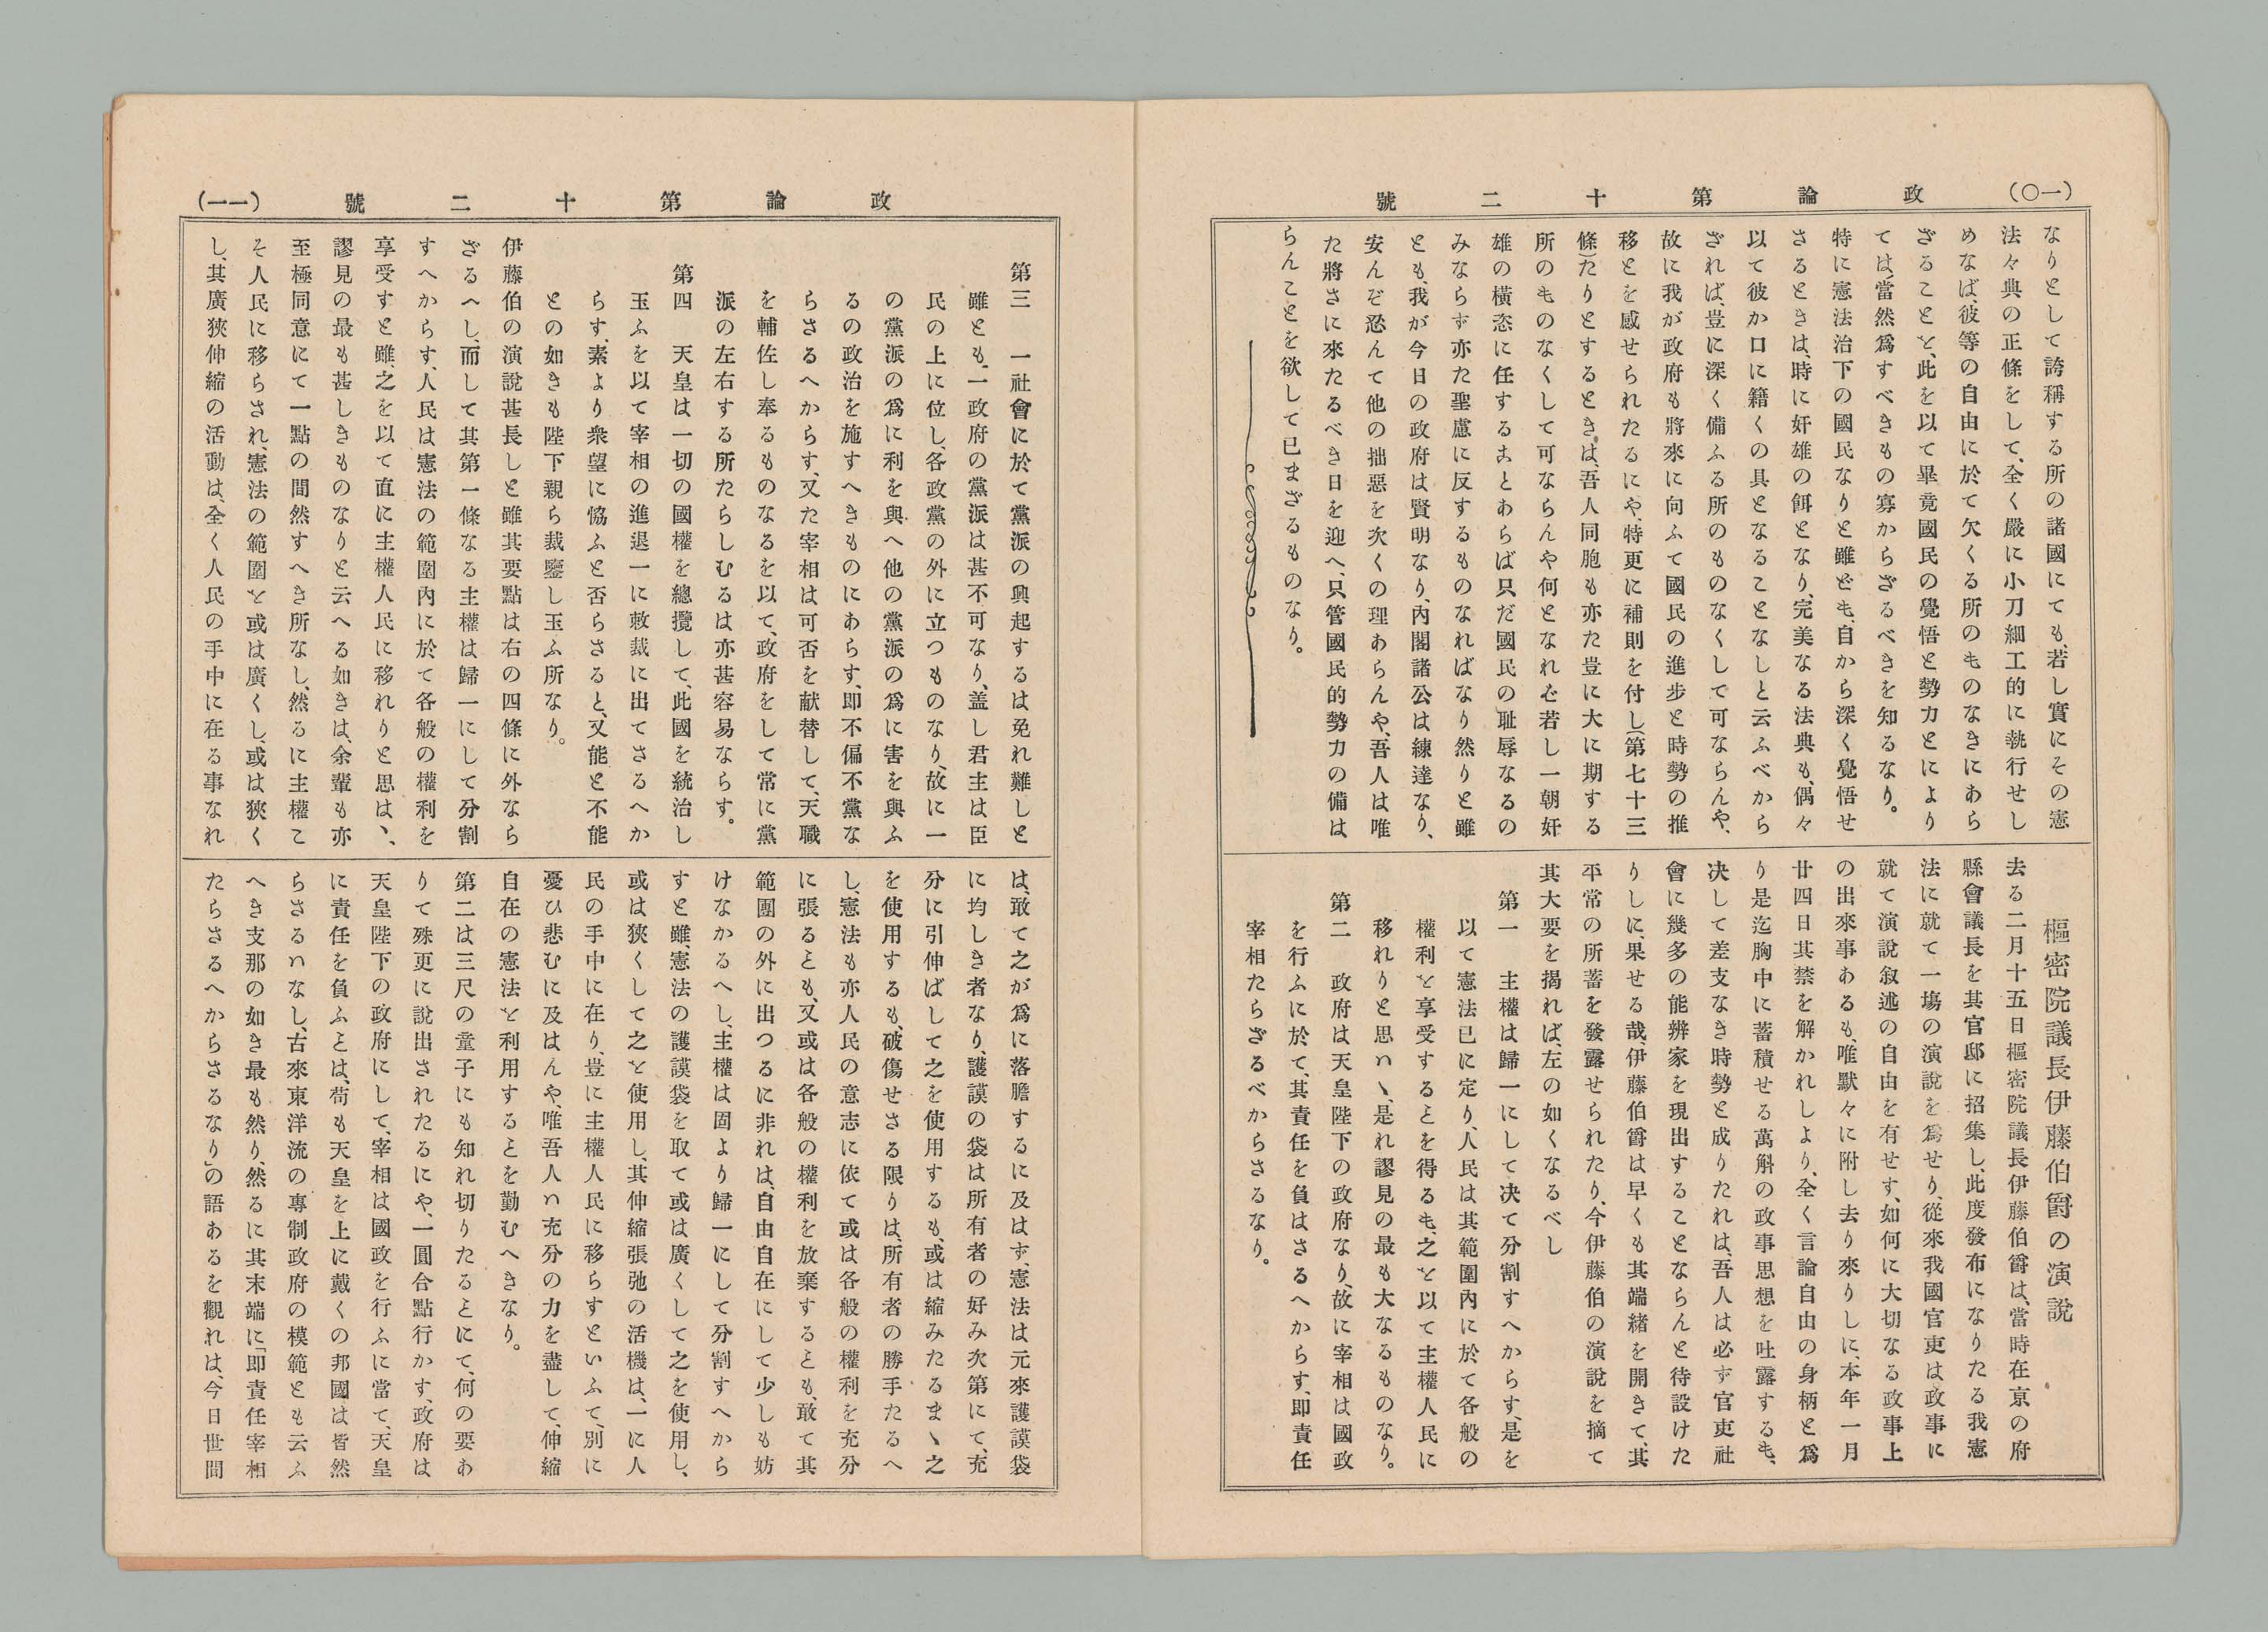 (一〇)
政論第十二號
なりとして誇稱する所の諸國にても、若し實にその憲
法々典の正條をして、全く嚴に小刀細工的に執行せし
めなば、彼等の自由に於て欠くる所のものなきにあら
ざることを、此を以て畢竟國民の覺悟と勢力とにより
ては、當然爲すべきもの寡からざるべきを知るなり。
特に憲法治下の國民なりと雖ども、自から深く覺悟せ
さるときは、時に奸雄の餌となり、完美なる法典も、偶々
以て彼か口に籍くの具となることなしと云ふべから
ざれば、豈に深く備ふる所のものなくして可ならんや、
故に我が政府も將來に向ふて國民の進步と時勢の推
移とを感せられたるにや、特更に補則を付し(第七十三
條)たりとするときは、吾人同胞も亦た豈に大に期する
所のものなくして可ならんや何となれを若し一朝奸
雄の橫恣に任するヿとあらば只だ國民の耻辱なるの
みならず亦た聖慮に反するものなればなり然りと雖
とも、我が今日の政府は賢明なり、內閣諸公は練達なり、
安んぞ恣んて他の拙惡を次くの理あらんや、吾人は唯
た將さに來たるべき日を迎へ、只管國民的勢力の備は
らんことを欲して已まざるものなり。
樞密院議長伊藤伯爵の演說
去る二月十五日樞密院議長伊藤伯爵は、當時在京の府
縣會議長を其官邸に招集し、此度發布になりたる我憲
法に就て一塲の演說を爲せり、從來我國官吏は政事に
就て演說叙述の自由を有せす、如何に大切なる政事上
の出來事あるも、唯默々に附し去り來りしに、本年一月
廿四日其禁を解かれしより、全く言論自由の身柄と爲
り是迄胸中に蓄積せる萬斛の政事思想を吐露するも、
决して差支なき時勢と成りたれは、吾人は必す官吏社
會に幾多の能辨家を現出することならんと待設けた
りしに、果せる哉、伊藤伯爵は早くも其端緒を開きて、其
平常の所蓄を發露せられたり、今伊藤伯の演說を摘て
其大要を揭れば、左の如くなるべし
第一　主權は歸一にして决て分割すへからす、是を
以て憲法已に定り、人民は其範圍內に於て各般の
權利を享受するとを得るも、之を以て主權人民に
移れりと思ハヽ、是れ謬見の最も大なるものなり。
第二　政府は天皇陛下の政府なり、故に宰相は國政
を行ふに於て、其責任を負はさるへからす、即責任
宰相たらざるべからさるなり。
政論第十二號
(一一)
第三　一社會に於て黨派の興起するは免れ難しと
雖とも、一政府の黨派は甚不可なり、盖し君主は臣
民の上に位し、各政黨の外に立つものなり、故に一
の黨派の爲に利を與へ他の黨派の爲に害を與ふ
るの政治を施すへきものにあらす、即不偏不黨な
らさるへからす、又た宰相は可否を献替して、天職
を輔佐し奉るものなるを以て、政府をして常に黨
派の左右する所たらしむるは亦甚容易ならす。
第四　天皇は一切の國權を總攬して、此國を統治し
玉ふを以て宰相の進退一に敕裁に出てさるへか
らす、素より衆望に協ふと否らさると、又能と不能
との如きも陛下親ら裁鑒し玉ふ所なり。
伊藤伯の演說甚長しと雖其要點は右の四條に外なら
ざるへし、而して其第一條なる主權は歸一にして分割
すへからす、人民は憲法の範圍內に於て各般の權利を
享受すと雖、之を以て直に主權人民に移れりと思は、ヽ
謬見の最も甚しきものなりと云へる如きは、余輩も亦
至極同意にて一點の間然すへき所なし、然るに主權こ
そ人民に移らされ、憲法の範圍を或は廣くし、或は狹く
し、其廣狹伸縮の活動は、全く人民の手中に在る事なれ
は、敢て之が爲に落膽するに及はす、憲法は元來護謨袋
に均しき者なり、護謨の袋は所有者の好み次第にて、充
分に引伸ばして之を使用するも、或は縮みたるまヽ之
を使用するも、破傷せさる限りは、所有者の勝手たるへ
し、憲法も亦人民の意志に依て或は各般の權利を充分
に張るとも、又或は各般の權利を放棄するとも、敢て其
範圍の外に出つるに非れは、自由自在にして少しも妨
けなかるへし、主權は固より歸一にして分割すへから
すと雖、憲法の護謨袋を取て或は廣くして之を使用し、
或は狹くして之を使用し、其伸縮張弛の活機は、一に人
民の手中に在り、豈に主權人民に移らすといふて、別に
憂ひ悲むに及はんや、唯吾人ハ充分の力を盡して、伸縮
自在の憲法を利用するとを勤むへきなり。
第二は三尺の童子にも知れ切りたるとにて、何の要あ
りて殊更に說出されたるにや、一圓合點行かす、政府は
天皇陛下の政府にして、宰相は國政を行ふに當て、天皇
に責任を負ふとは、苟も天皇を上に戴くの邦國は皆然
らさるハなし、古來東洋流の專制政府の模範とも云ふ
へき支那の如き最も然り、然るに其末端に「即責任宰相
たらさるへからさるなり」の語あるを觀れは、今日世間